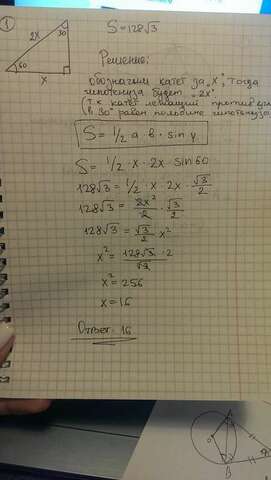 1
S = 128√3
2x
30
60
x
Решение:
обозначим катет за "x", тогда
гипотенуза будет "2x"
(т.к. катет лежащий против угла
в 30° равен половине гипотенузы)
S = 1/2 a · b · sin γ
S = 1/2 · x · 2x · sin 60
128√3 = 1/2 · x · 2x · √3/2
128√3 = 2x²/2 · √3/2
128√3 = √3/2 x²
x² = 128√3 · 2/√3
x² = 256
x = 16
Ответ: 16
B